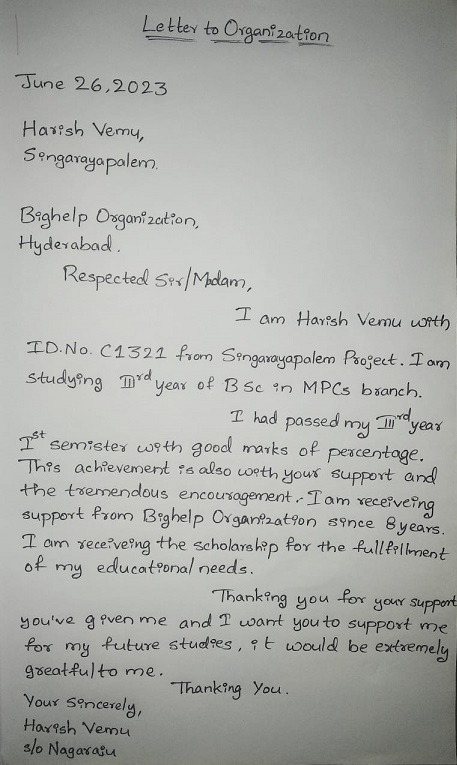 Letter to Organization
June 26,2023
Harish Vemu,
Singarayapalem.
Bighelp Organization,
Hyderabad.
Respected Sir/Madam,
I am Harish Vemu with
ID.No. C1321 from Singarayapalem Project. I am
studying IIIrd year of BSc in MPCs branch.
I had passed my IIIrd year
Ist semister with good marks of percentage.
This achievement is also with your support and
the tremendous encouragement. I am receiveing
support from Bighelp Organization since 8 years.
I am receiveing the scholarship for the fullfillment
of my educational needs.
Thanking you for your support
you've given me and I want you to support me
for my future studies, it would be extremely
greatful to me.
Thanking You.
Your Sincerely,
Harish Vemu
s/o Nagaraju